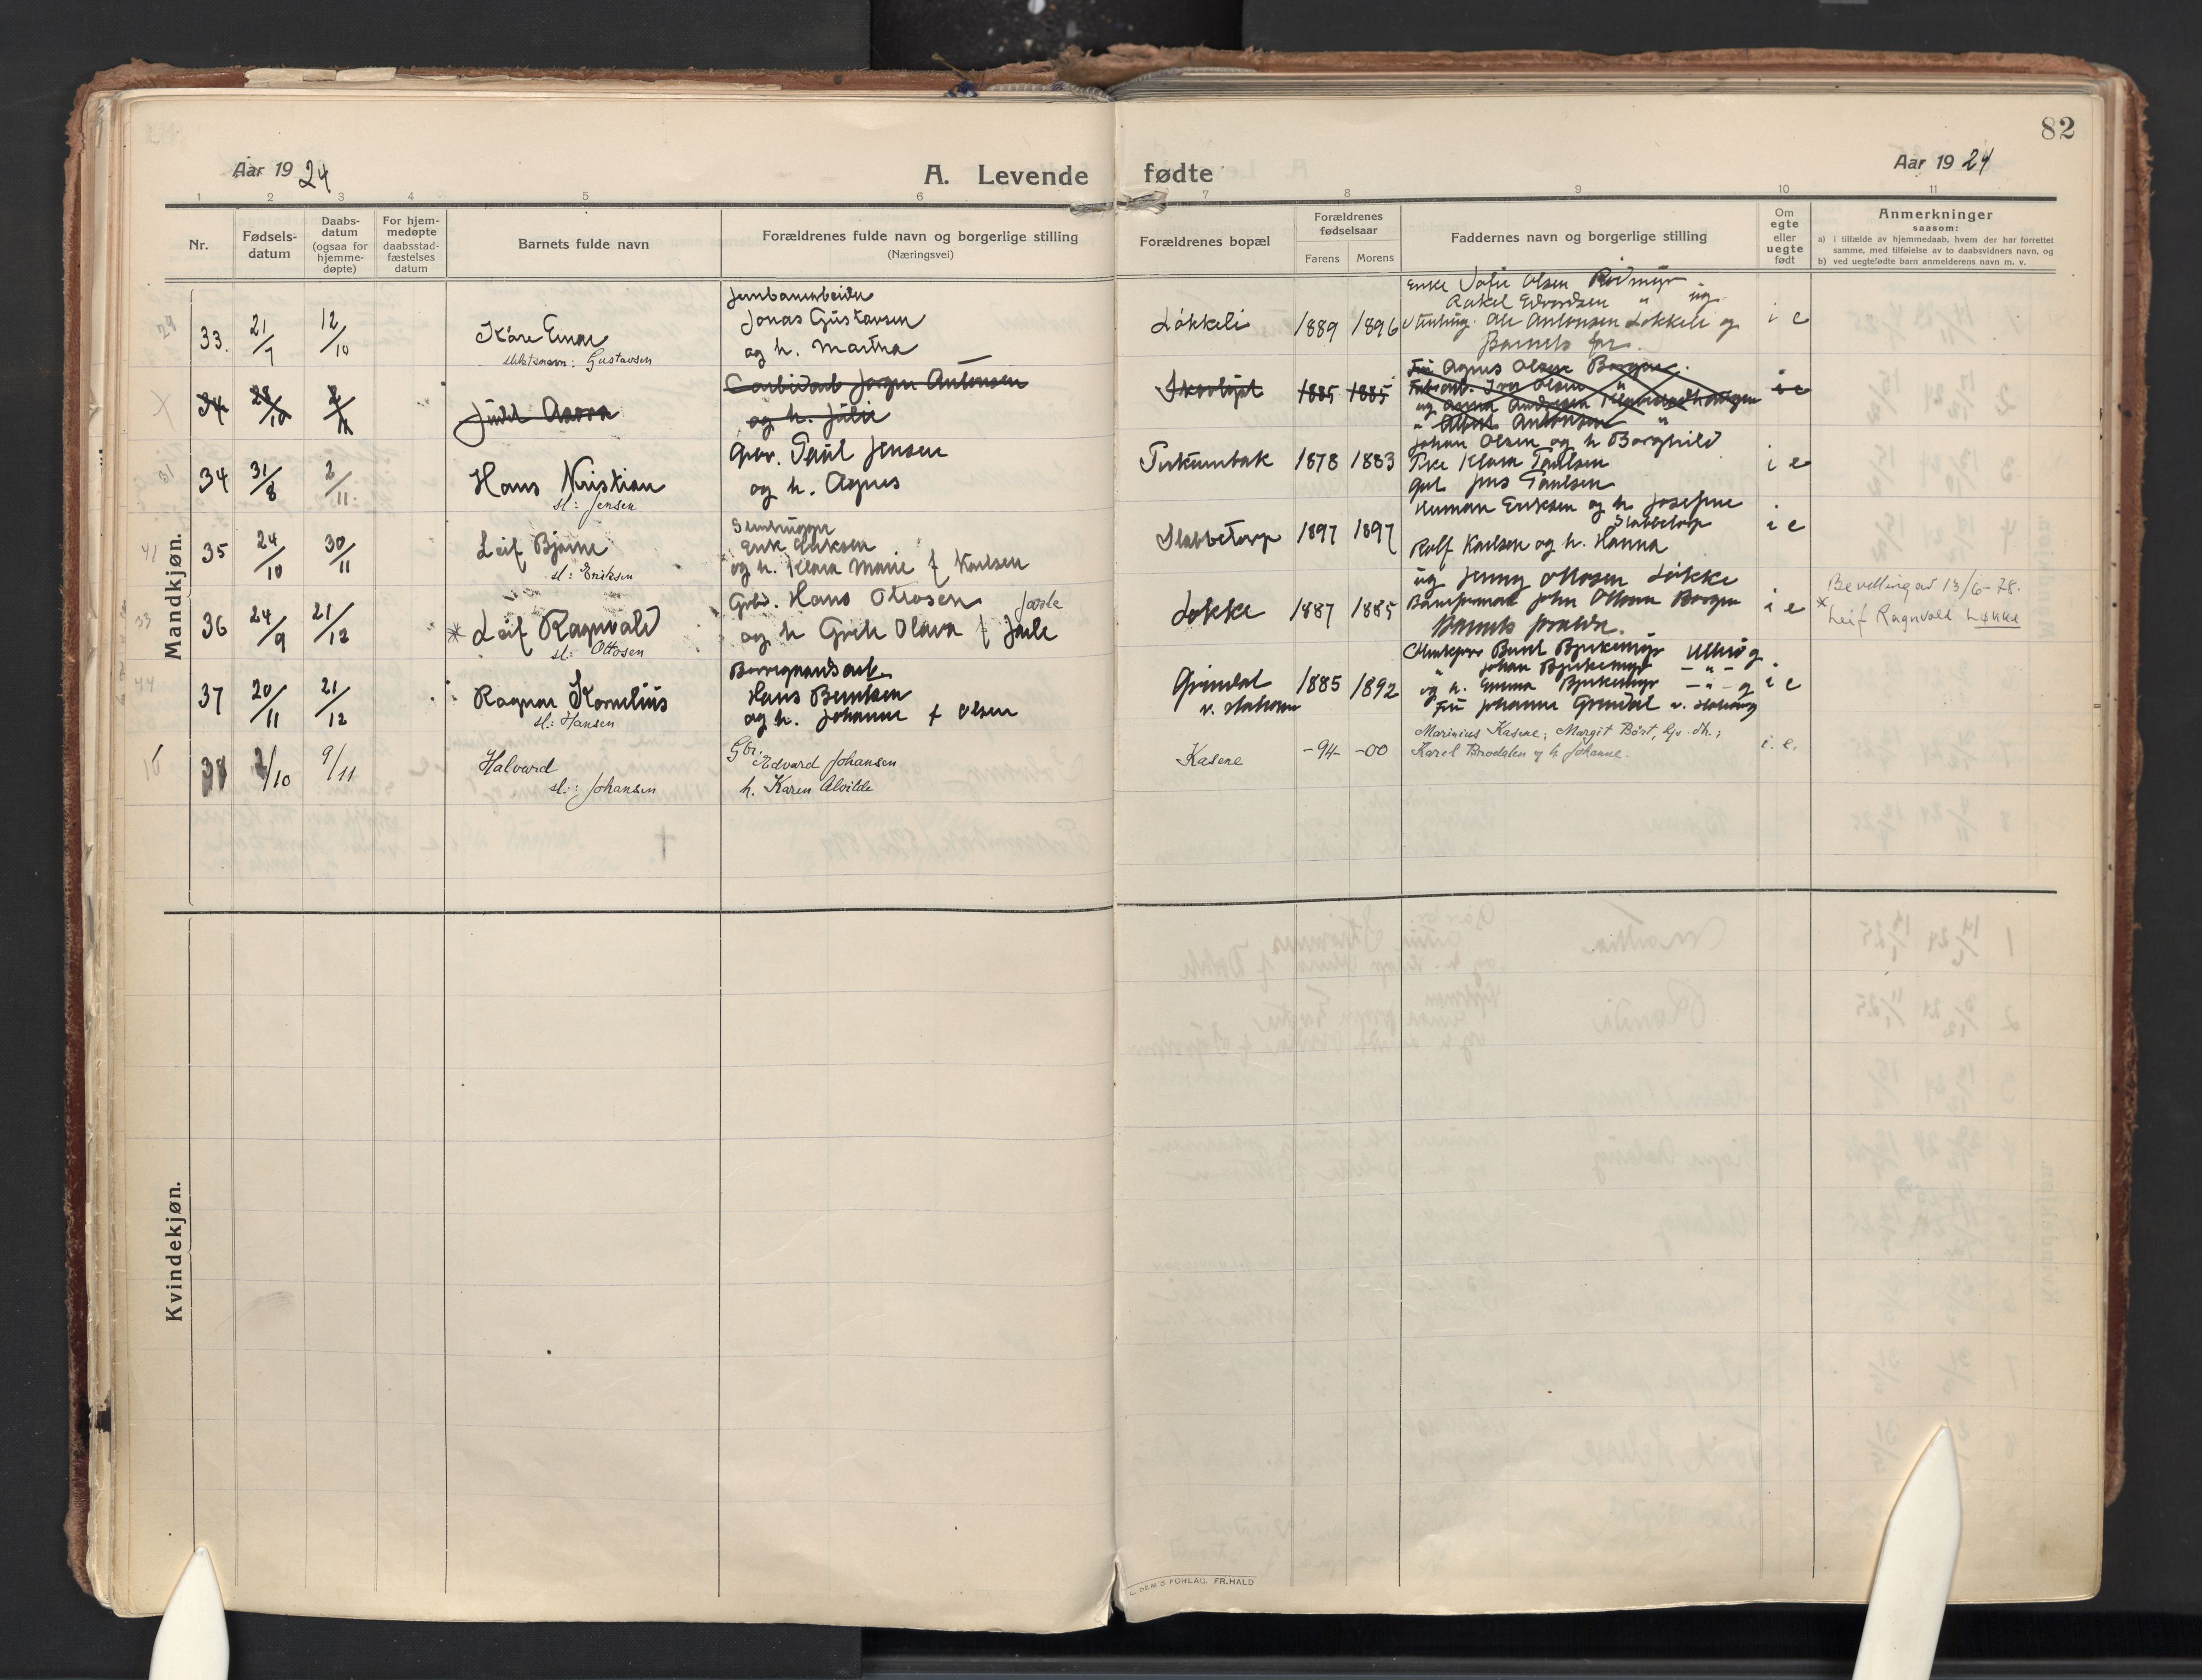 82
Aar 1924
A. Levende fødte
Aar 1924
1 2 3 4 5 6 7 8 9 10 11
Nr.
Fødsels-
datum
Daabs-
datum
(ogsaa for
hjemme-
døpte)
For hjem-
medøpte
daabsstad-
fæstelses
datum
Barnets fulde navn
Forældrenes fulde navn og borgerlige stilling
(Næringsvei)
Forældrenes bopæl
Forældrenes
fødselsaar
Farens Morens
Faddernes navn og borgerlige stilling
Om
egte
eller
uegte
født
Anmerkninger
saasom:
a) i tilfælde av hjemmedaab, hvem der har forrettet
samme, med tilføielse av to daabsvidners navn, og
b) ved uegtefødte barn anmelderens navn m. v.
Mandkjøn.
33. 21/7 12/10
Kåre Einar
slektsnavn: Gustavsen
Jernbanearbeider
Jonas Gustavsen
og h. Martha
Løkkeli 1889 1896
Enke Sofie Olsen Rødmyr
Rakel Edvardsen " og
Ole Antonsen Løkkeli og
Barnets far.
i e
34 28/10 2/11
Judit Aasora
Jørgen Antonsen
og h. Julie
1885 1885
Fru Agnes Olsen Borgen.
Iver Olsen "
og Anna Andersen
" Albert Antonsen "
i e
34 31/8 2/11
Hans Kristian
sl: Jensen
Gbr. Paul Jensen
og h. Agnes
1878 1883
Johan Olsen og h Borghild
Pike Klara Paulsen
Gut Jens Paulsen
i e
35 24/10 30/11
Leif Bjarne
sl: Eriksen
Stenhugger
Erik Eriksen
og h. Klara Marie f Karlsen
Slabbetorp 1897 1897
Herman Eriksen og h Josefine
Slabbetorp
Rolf Karlsen og h. Hanna
i e
36 24/9 21/12
* Leif Ragnvald
sl: Ottosen
Gbr. Hans Ottosen
og h Grete Olava f Jarle
Løkke 1887 1885
og Jenny Ottosen Løkke
John Ottosen Borgen
Barnets forældre.
i e
Bevilling av 13/6-78.
* Leif Ragnvald Løkke
37 20/11 21/12
Ragnar Kornelius
sl: Hansen
Borregaardsarb.
Hans Berntsen
og h. Johanne f Olsen
Grindal
1885 1892
Bernt Bjerkemyr Ullerøy
" Johan Bjerkemyr - " -
og h. Emma Bjerkemyr - " - og
Fru Johanne Grindal
i e
38 2/10 9/11
Halvard
sl.: Johansen
Gbr.
Edvard Johansen
h. Karen Alvilde
Kasene -94- -00
Marinius Kasene; Margit Bøst, Gjv. dtr.;
Karel Brodalen og h Johanne.
i. e.
Kvindekjøn.
FORLAG. FR.HALD